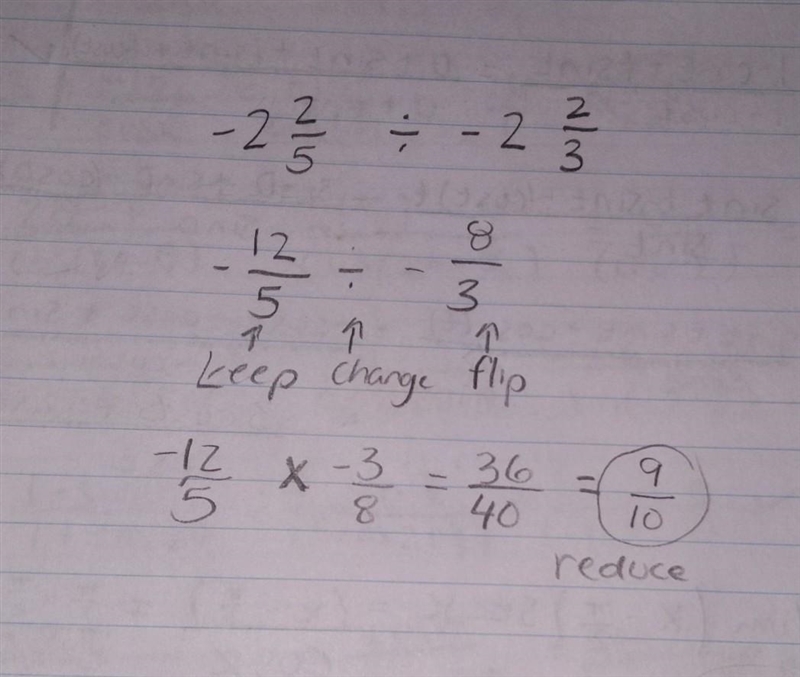 -2 2/5 ÷ -2 2/3
-12/5 ÷ -8/3
keep change flip
-12/5 x -3/8 = 36/40 = 9/10
reduce